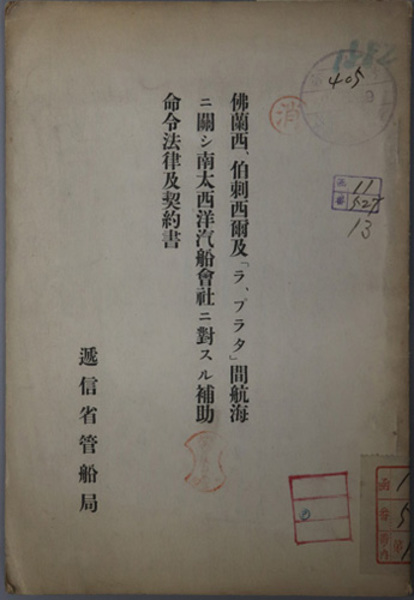 佛蘭西、伯剌西爾及「ラ、プラタ」間航海
ニ關シ南太西洋汽船會社ニ對スル補助
命令法律及契約書
遞信省管船局
消
405
11
527
13
番